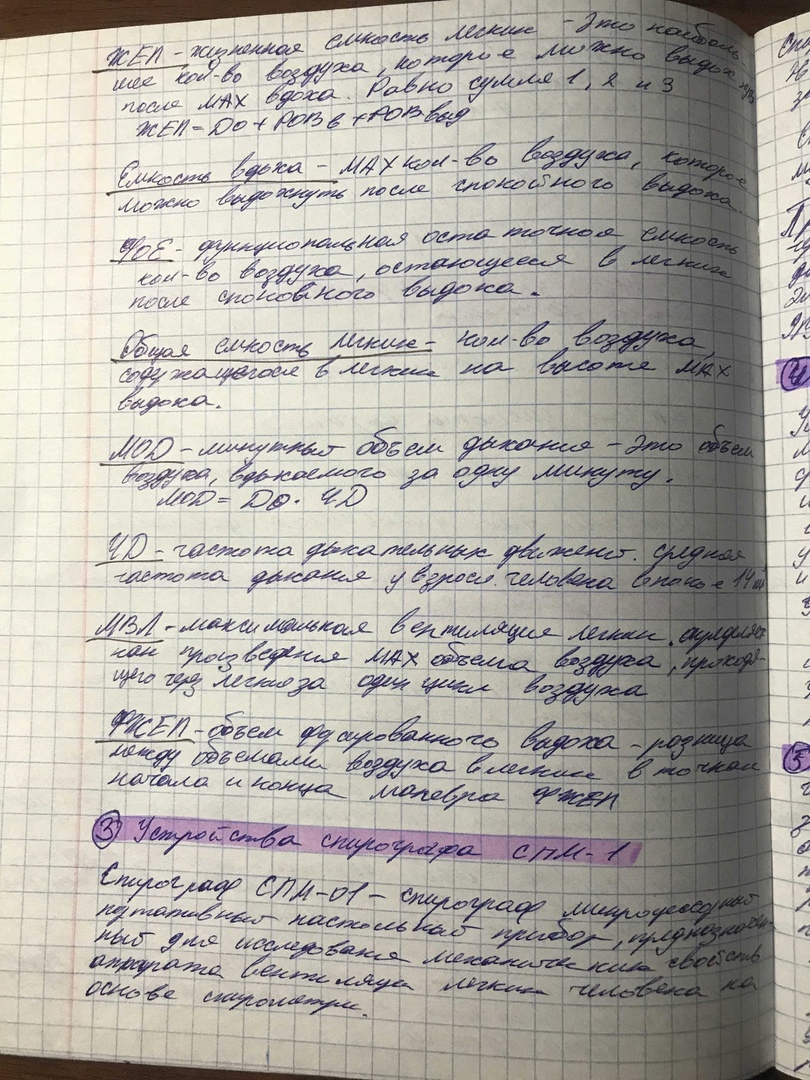 ЖЕЛ - жизненная емкость легких - это наиболь-
шее кол-во воздуха, которое можно выдохнуть
после MAX вдоха. Равно сумме 1, 2 и 3
ЖЕЛ = ДО + РОВв + РОВвыд
Емкость вдоха - MAX кол-во воздуха, которое
можно выдохнуть после спокойного выдоха.
ФОЕ - функциональная остаточная емкость
кол-во воздуха, остающееся в легких
после спокойного выдоха.
Общая емкость легких - кол-во воздуха,
содержащегося в легких на высоте MAX
выдоха.
МОД - минутный объем дыхания - это объем
воздуха, вдыхаемого за одну минуту.
МОД = ДО · ЧД
ЧД - частота дыхательных движений. Средняя
частота дыхания у взросл. человека в покое 14
МВЛ - максимальная вентиляция легких. определяет
как произведения MAX объема воздуха, проходя-
щего через легкие за один цикл воздуха
ФЖЕЛ - объем форсированного выдоха - разница
между объемами воздуха в легких в точках
начала и конца маневра ФЖЕЛ
3 Устройства спирографа СПМ-1
Спирограф СПМ-01 - спирограф микропроцессорный
портативный настольный прибор, предназначен-
ный для исследования механических свойств
аппарата вентиляции легких человека на
основе спирометрии.